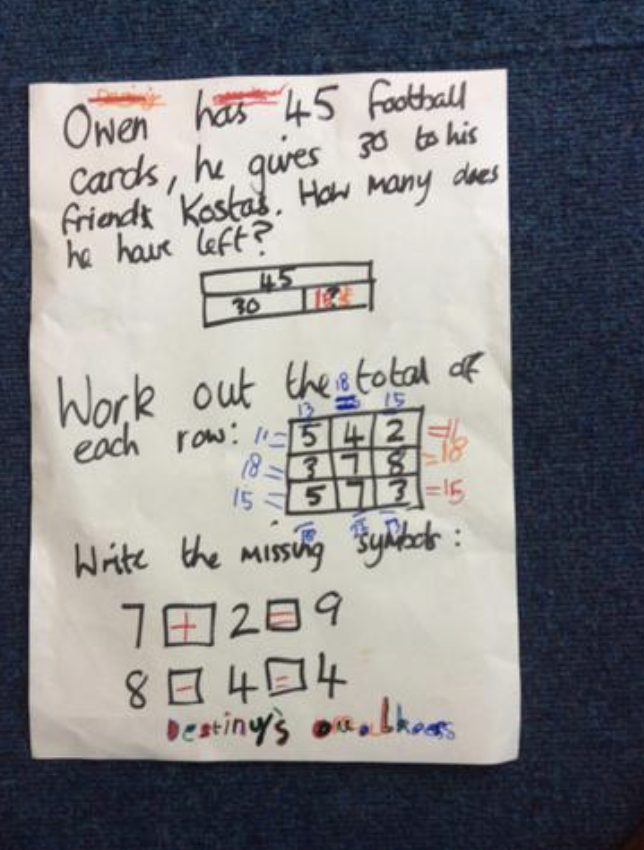 Owen has 45 football
cards, he gives 30 to his
friends Kostas. How many does
he have left?
45
30
Work out the total of
each row:
18
13 15
11= 5 4 2 =11
18= 3 7 8 =18
15= 5 7 3 =15
Write the missing symbols:
7 + 2 = 9
8 - 4 = 4
Destiny's